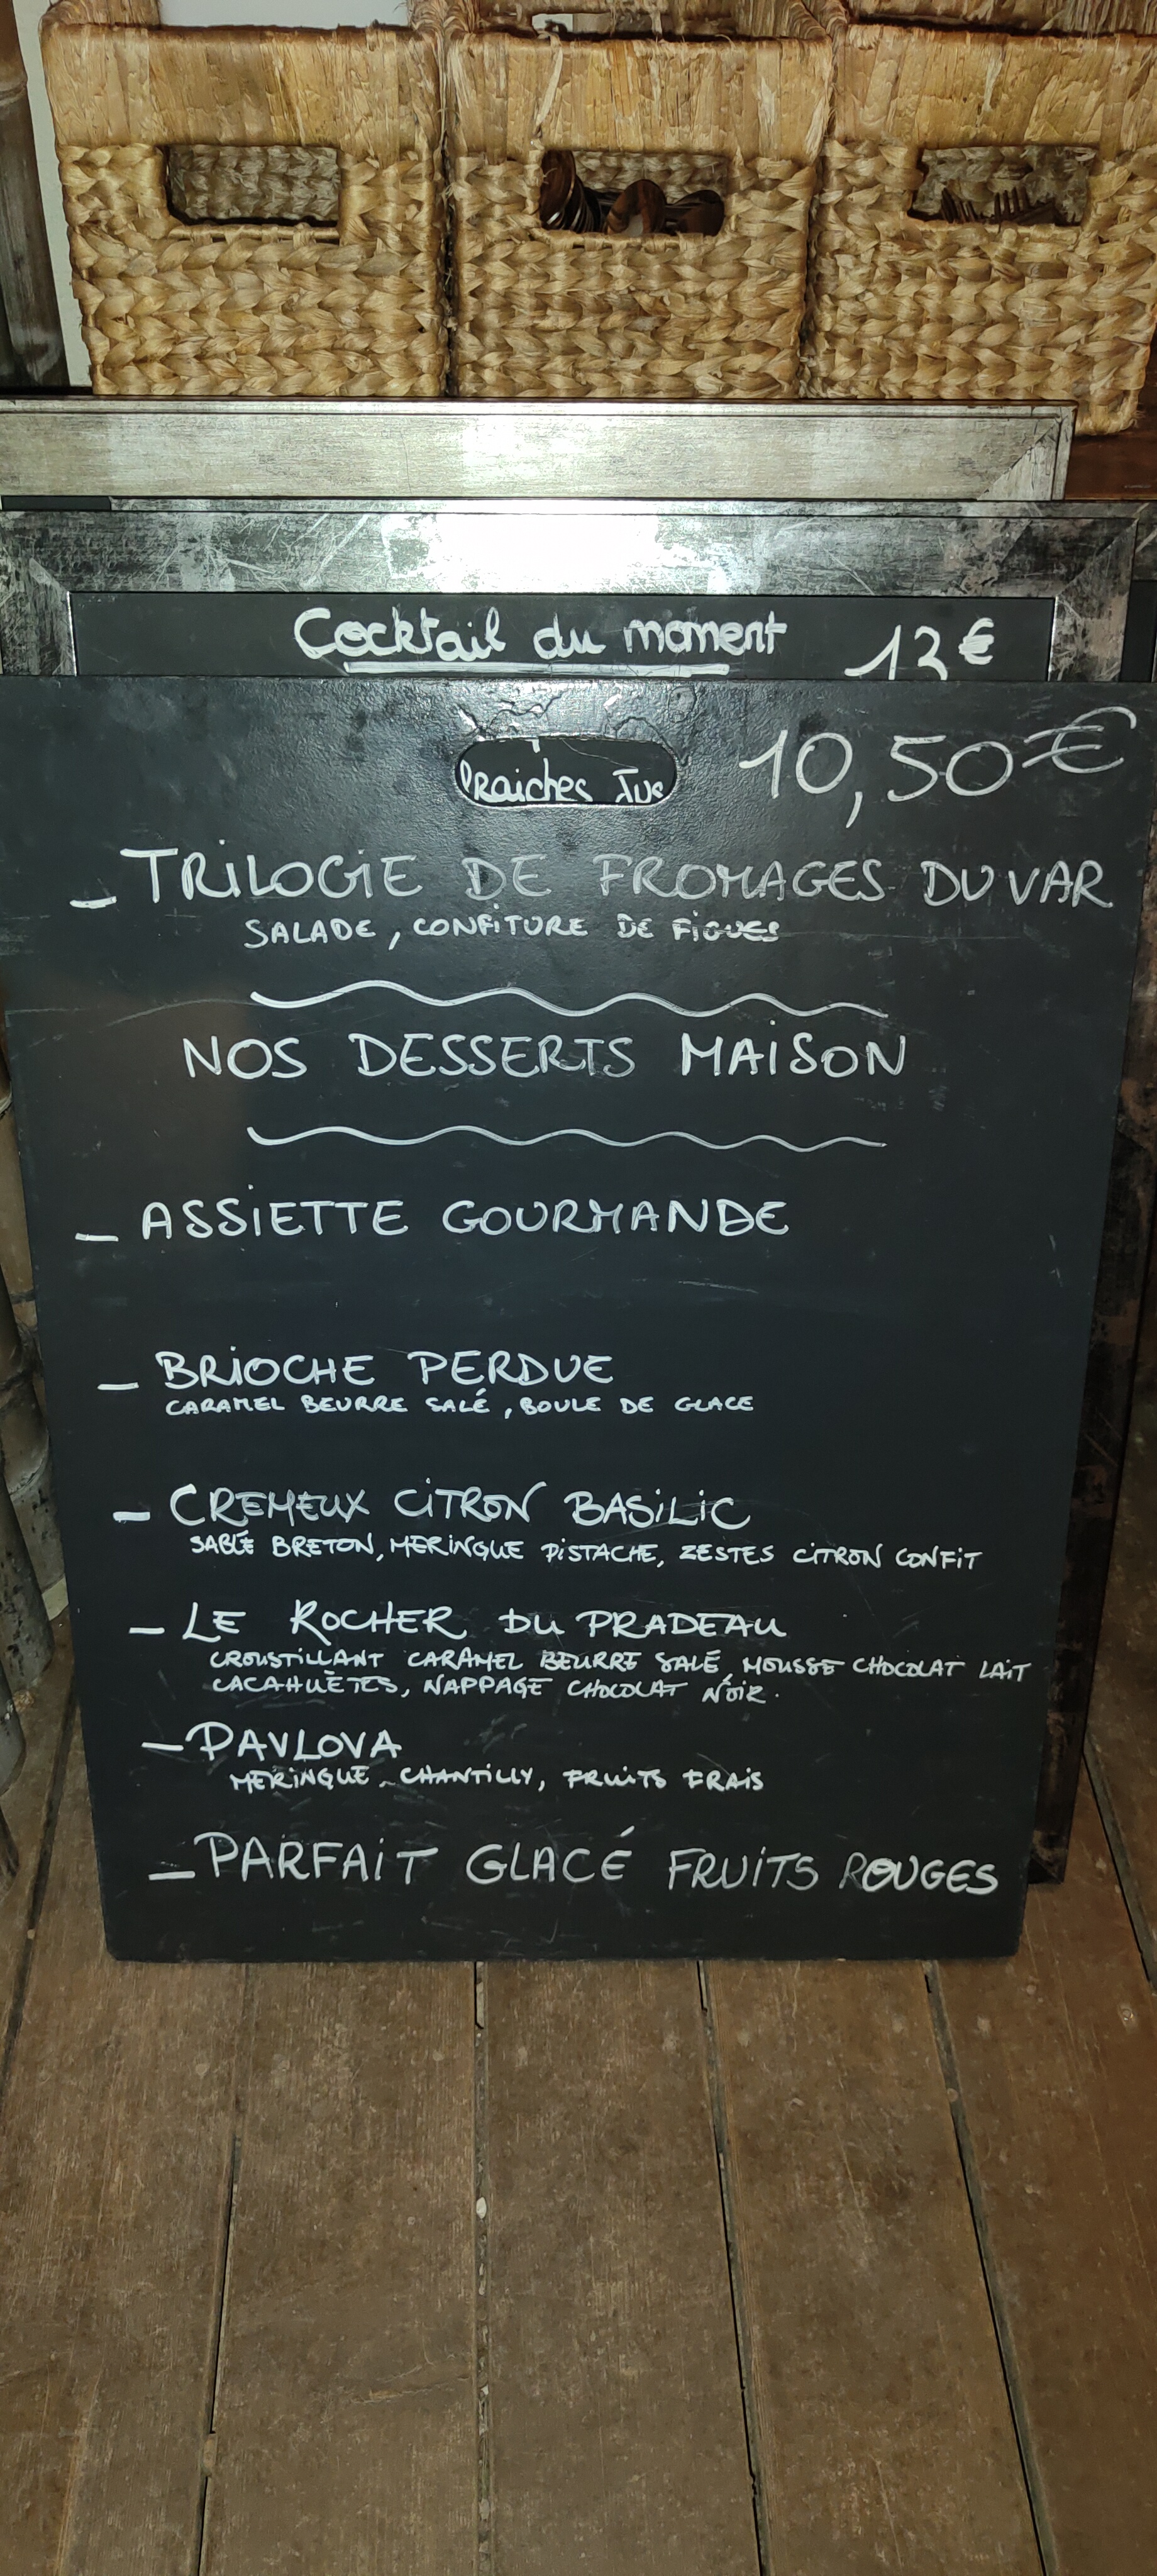 Cocktail du moment 12€
10,50€
Fraiches Jus
_ TRILOGIE DE FROMAGES DU VAR
SALADE, CONFITURE DE FIGUES
NOS DESSERTS MAISON
_ ASSIETTE GOURMANDE
_ BRIOCHE PERDUE
CARAMEL BEURRE SALÉ, BOULE DE GLACE
_ CREMEUX CITRON BASILIC
SABLÉ BRETON, MERINGUE PISTACHE, ZESTES CITRON CONFIT
_ LE ROCHER DU PRADEAU
CROUSTILLANT CARAMEL BEURRE SALÉ, MOUSSE CHOCOLAT LAIT
CACAHUÈTES, NAPPAGE CHOCOLAT NOIR.
_ PAVLOVA
MERINGUE, CHANTILLY, FRUITS FRAIS
_ PARFAIT GLACÉ FRUITS ROUGES